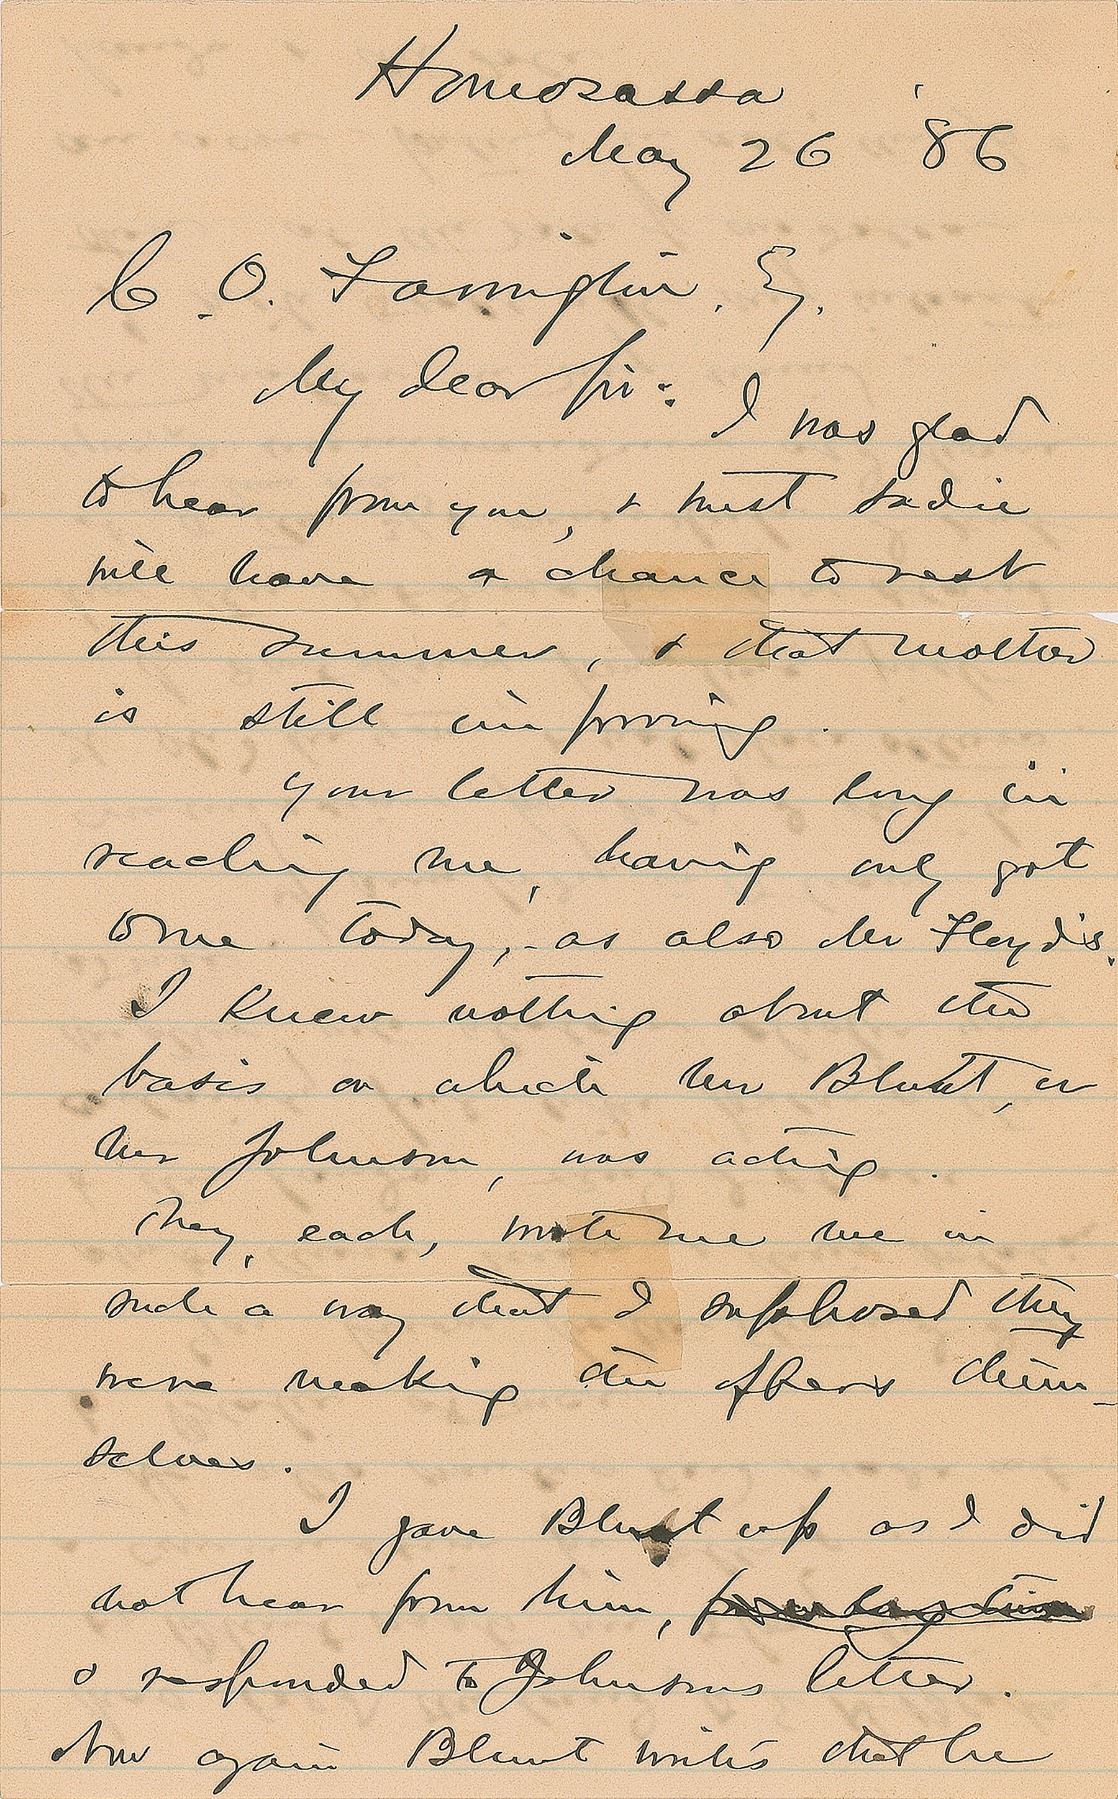 Homosassa
May 26 '86
C. O. Farrington, Esq.
My dear Sir:
I was glad
to hear from you, & trust Sadie
will have a chance to rest
this summer, & that mother
is still improving.
Your letter was long in
reaching me, having only got
to me today, - as also Mr Floyd's.
I knew nothing about the
basis on which Mr Blunt, or
Mr Johnson, was acting.
They, each, wrote me me in
such a way that I supposed they
were making the offers them-
selves.
I gave Blunt up as I did
not hear from him, for a long time
& responded to Johnsons letter.
Now again Blunt writes that he